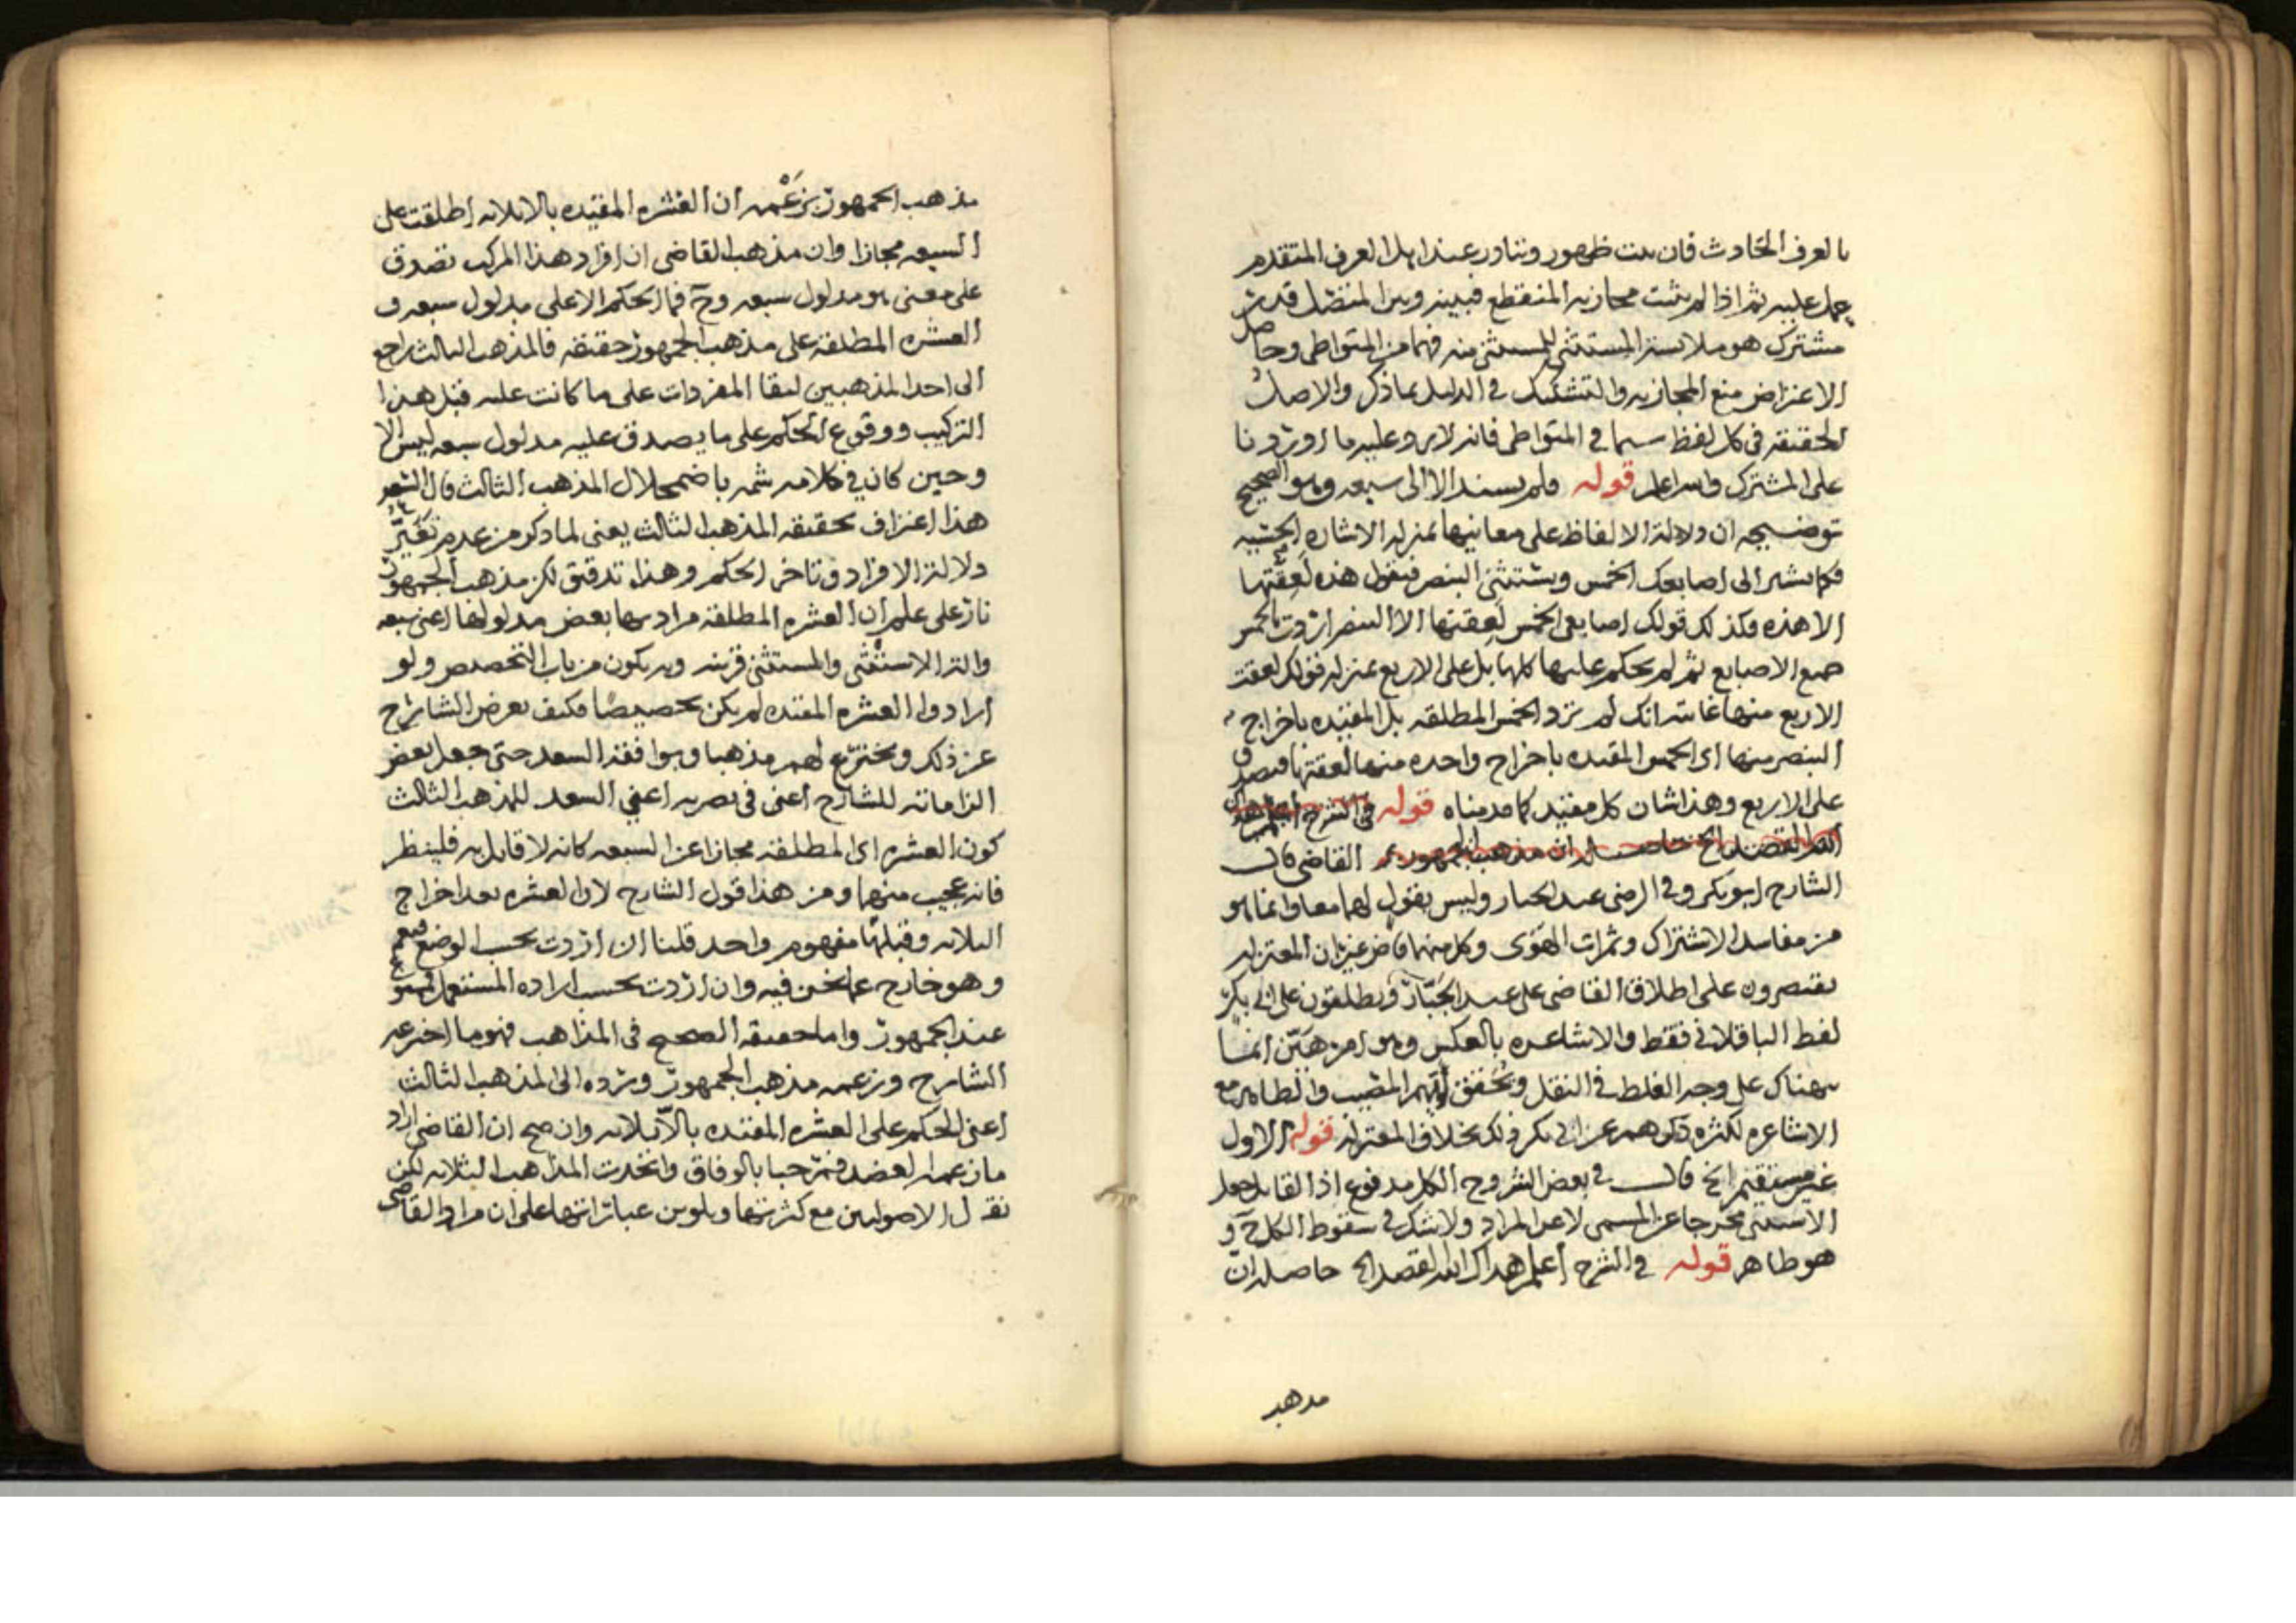 بالعرف الحادث فان ثبت ظهور وتبادر عند اهل العرف المتقدم
عمل عليه ثم اذا لم يثبت مجازيه المنقطع فبينه وبين المتصل قدر
مشترك هو ملابسة المستثنى للمستثنى منه فهما من المتواطي وحاصل
الاعتراض منع المجازيه والتشكيك في الدليل بما ذكر والاصل
الحقيقة في كل لفظ سيما في المتواطي فانه لا يرد عليه ما اوردونا
على المشترك والله اعلم قوله فلم يسند الا الى سبعه وهو الصحيح
توضيحه ان دلالة الالفاظ على معانيها بمنزله الاشاره الحسيه
فكما تشير الى اصابعك الخمس وتستثني البنصر فتقول هذه لعقتها
الا هذه فكذلك قولك اصابعي الخمس لعقتها الا البنصر اردت بالخمس
جميع الاصابع ثم لم تحكم عليها كلها بل على الاربع بمنزله قولك لعقت
الاربع منها غايته انك لم ترد الخمس المطلقه بل المقيده باخراج
البنصر منها اي الخمس المقيده باخراج واحده منها لعقتها فيصدق
على الاربع وهذا شان كل مقيد كما قدمناه قوله في الشرح
القاضي قال
الشارح ابو بكر وفي الرضى عبد الجبار وليس بقول لهما معا وانما هو
من مفاسد الاشتراك وثمرات الهوى وكل منهما قاض غير ان المعتزله
يقتصرون على اطلاق القاضي على عبد الجبار ويطلقون على ابي بكر
لفظ الباقلاني فقط والاشاعره بالعكس وهو امر هين انما
يهناك على وجه الغلط في النقل وتحقق ايهم المصيب والظاهر مع
الاشاعره لكثره ذكرهم عن ابي بكر ذلك بخلاف المعتزله قوله الاول
غير مستقيم الخ قال في بعض الشروح الكل مدفوع اذ القايل جعل
الاستثنى مخرجا عن المسمى لا عن المراد ولا شك في سقوط الكل ح و
هو ظاهر قوله في الشرح اعلم هداك الله القصد الخ حاصله ان
مذهب
مذهب الجمهور بزعمه ان العشره المقيده بالا ثلاثه اطلقت على
السبعه مجازا وان مذهب القاضي ان افراد هذا المركب تصدق
على معنى هو مدلول سبعه وح فما الحكم الا على مدلول سبعه و
العشره المطلقه على مذهب الجمهور حقيقه فالمذهب الثالث راجع
الى احد المذهبين لبقا المفردات على ما كانت عليه قبل هذا
التركيب ووقوع الحكم على ما يصدق عليه مدلول سبعه ليس الا
وحين كان في كلامه شمه باضمحلال المذهب الثالث قال السعد
هذا اعتراف بحقيقه المذهب الثالث يعني لما ذكر من عدم تغير
دلالة الافراد وتاخر الحكم وهذا تدقيق لكن مذهب الجمهور
نار على علم ان العشره المطلقه مراد بها بعض مدلولها اعني سبعه
والة الاستثنى والمستثنى قرينه وبه يكون من باب التخصيص ولو
ارادوا العشره المقيده لم يكن تخصيصا فكيف يعرض الشارح
عن ذلك ويخترع لهم مذهبا ويوافقه السعد حتى جعل بعض
الزاماته للشارح اعني في نصره اعني السعد للمذهب الثالث
كون العشره اي المطلقه مجازا عن السبعه كانه لا قايل به فلينظر
فانه عجيب منهما ومن هذا قول الشارح لان العشره بعد اخراج
الثلاثه وقبلها مفهوم واحد قلنا ان اردت بحسب الوضع فنعم
وهو خارج عما نحن فيه وان اردت بحسب اراده المستعمل
عند الجمهور واما حقيقه الصحيح في المذاهب فهو ما اخترعه
الشارح وزعمه مذهب الجمهور ورده الى المذهب الثالث
اعني الحكم على العشره المقيده بالا ثلاثه وان صح ان القاضي اراد
ما زعمه العضد فمرحبا بالوفاق واتحدت المذاهب الثلاثه لكن
نقل الاصوليين مع كثرتها وتلوين عباراتها على ان مراد القاضي